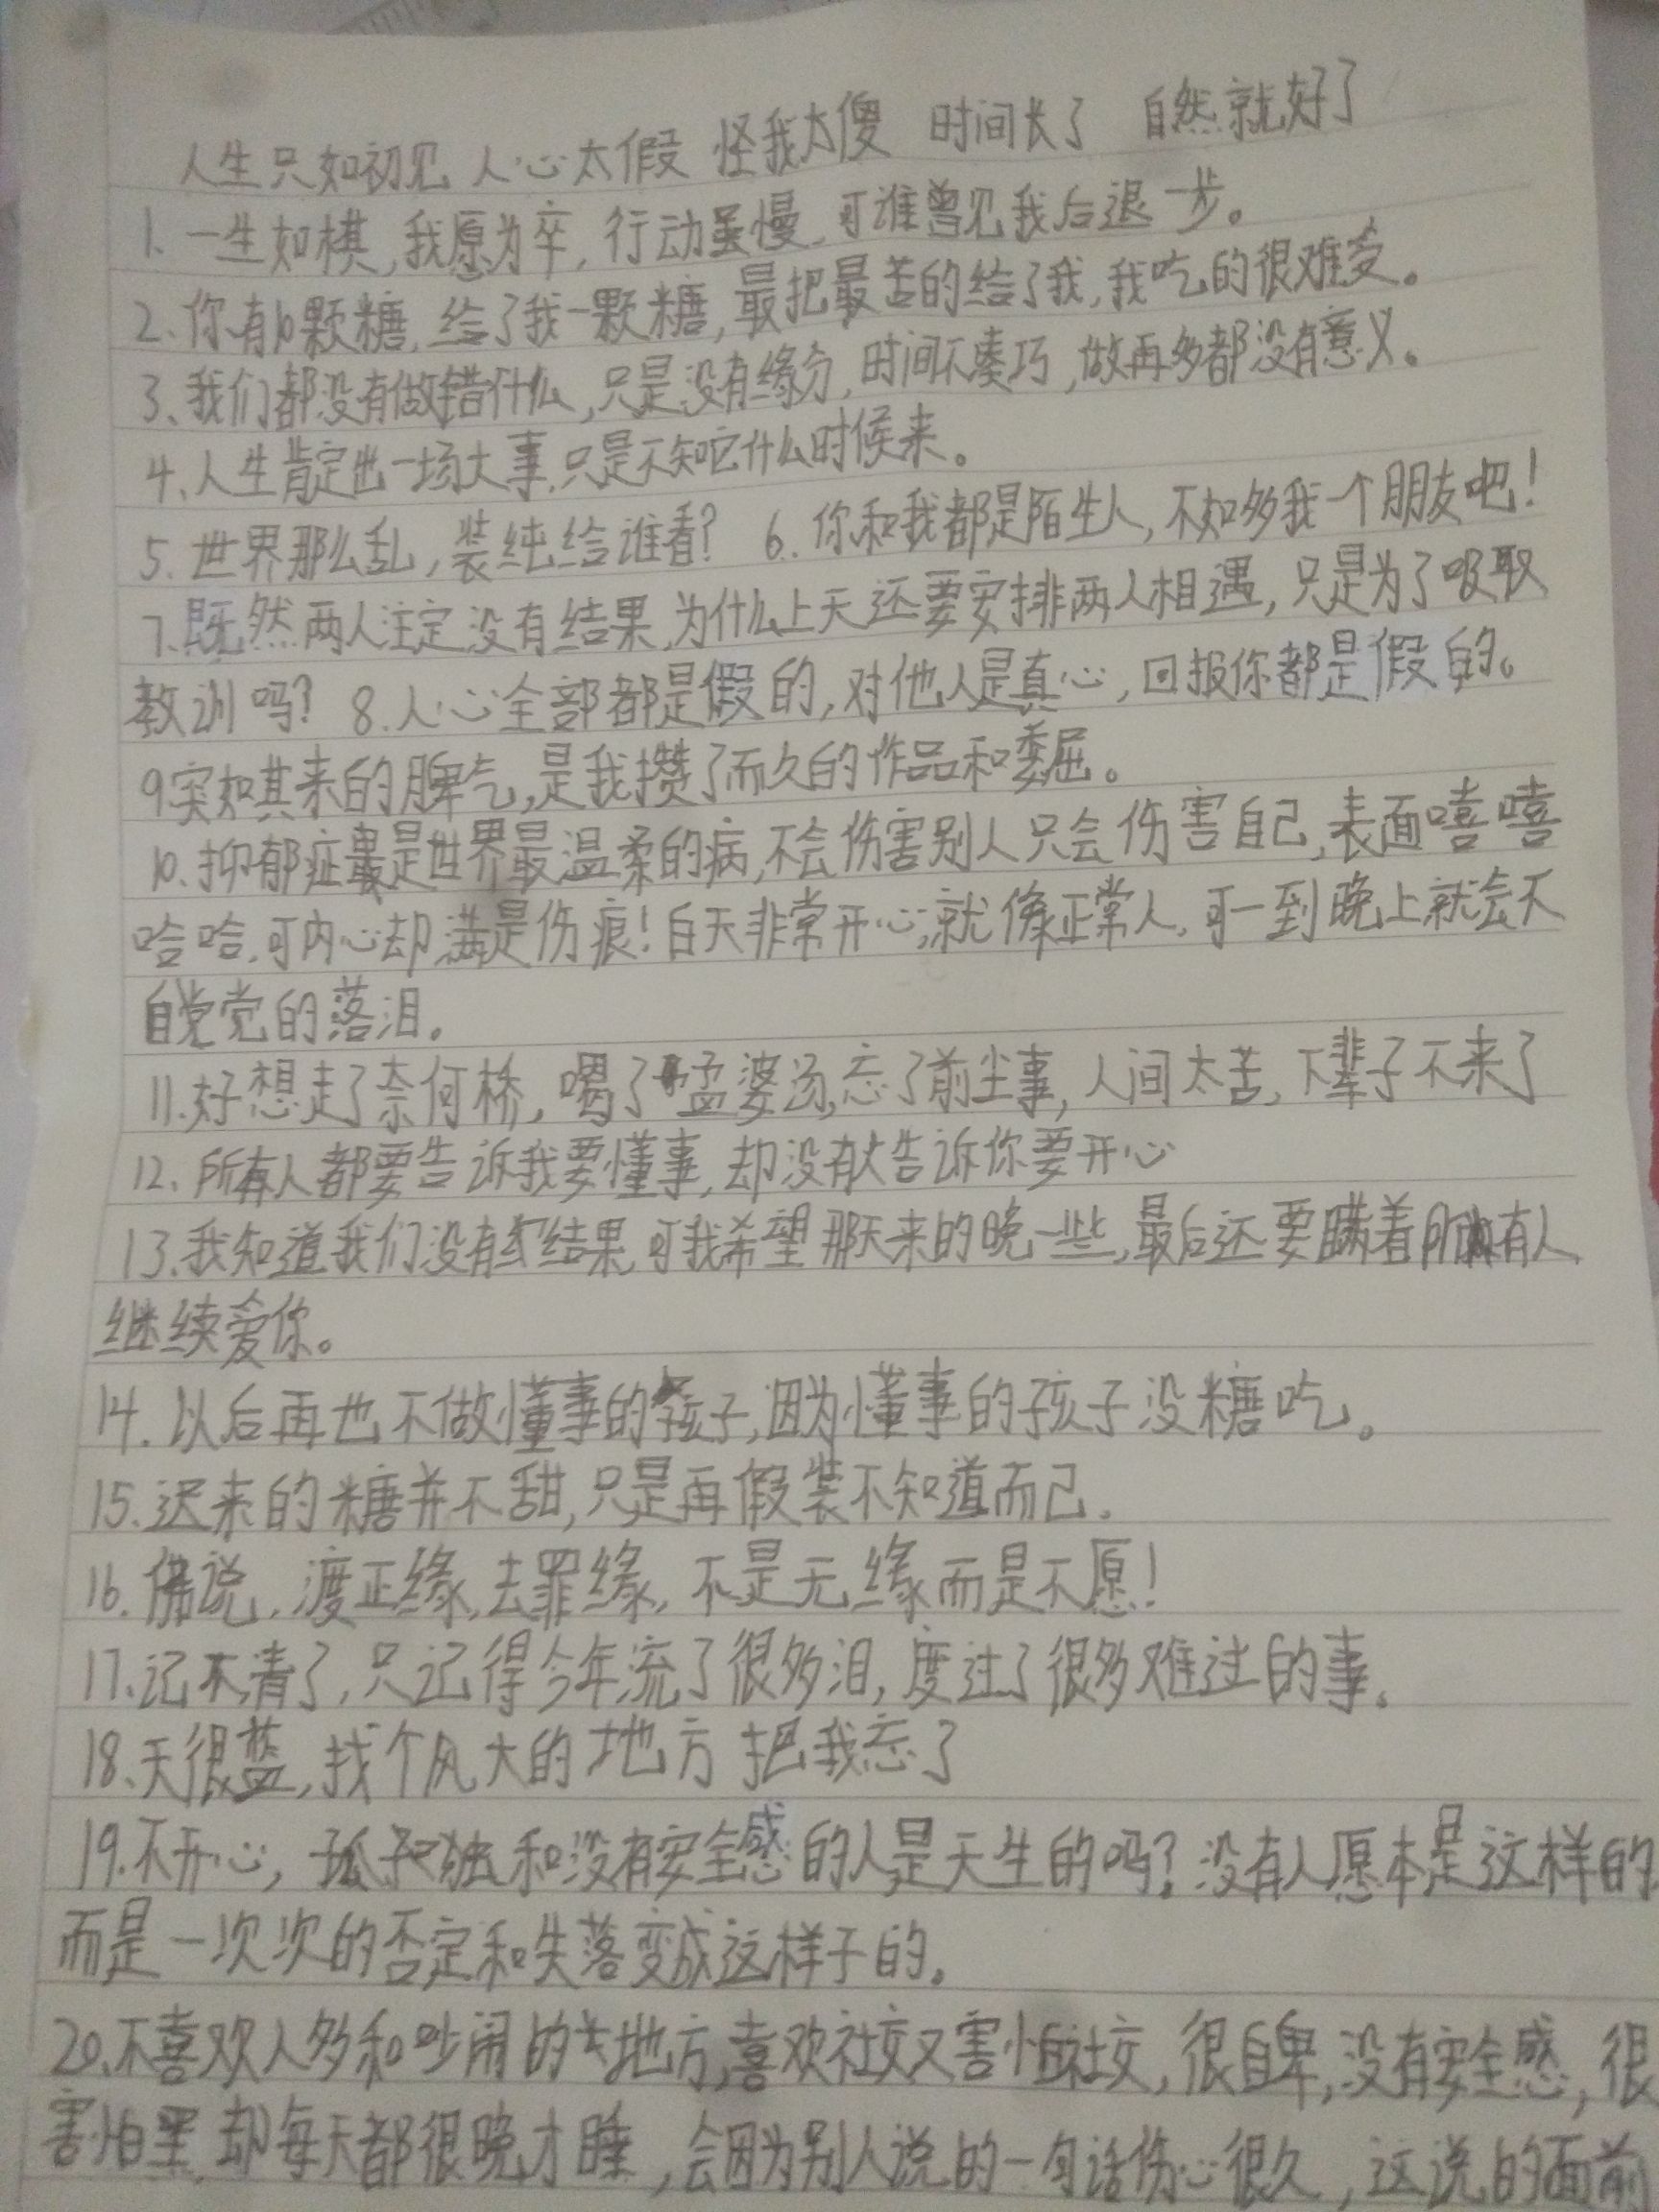 人生只如初见 人心太假 怪我太傻 时间长了 自然就好了
1. 一生如棋,我愿为卒,行动虽慢,可谁曾见我后退一步。
2、你有10颗糖,给了我一颗糖,最把最苦的给了我,我吃的很难受。
3、我们都没有做错什么,只是没有缘分,时间不凑巧,做再多都没有意义。
4、人生肯定出一场大事,只是不知它什么时候来。
5. 世界那么乱,装纯给谁看? 6. 你和我都是陌生人,不如多我一个朋友吧!
7、既然两人注定没有结果,为什么上天还要安排两人相遇,只是为了吸取
教训吗? 8.人心全部都是假的,对他人是真心,回报你都是假的。
9突如其来的脾气,是我攒了而久的作品和委屈。
10、抑郁症是世界最温柔的病,不会伤害别人只会伤害自己,表面嘻嘻
哈哈,可内心却满是伤痕!白天非常开心,就像正常人,可一到晚上就会不
自觉觉的落泪。
11.好想走了奈何桥,喝了孟婆汤,忘了前尘事,人间太苦,下辈子不来了
12、所有人都要告诉我要懂事,却没有人告诉你要开心
13、我知道我们没有结果,可我希望那天来的晚一些,最后还要瞒着所有人
继续爱你。
14. 以后再也不做懂事的孩子,因为懂事的孩子没糖吃。
15、迟来的糖并不甜,只是再假装不知道而己.
16.佛说,渡正缘,去罪缘,不是无缘而是不愿!
17、记不清了,只记得今年流了很多泪,度过了很多难过的事。
18、天很蓝,找个风大的地方 把我忘了
19.不开心,孤独和没有安全感的人是天生的吗?没有人愿本是这样的
而是一次次的否定和失落变成这样子的。
20、不喜欢人多和吵闹的地方,喜欢社交又害怕社交,很自卑,没有安全感,很
害怕黑,却每天都很晚才睡,会因为别人说的一句话伤心很久,这说的面前